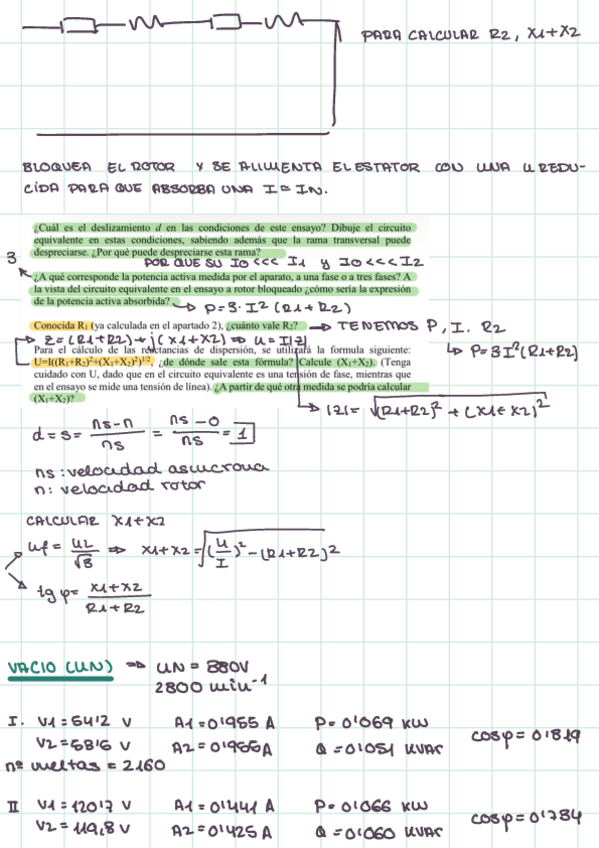 PARA CALCULAR R2, X1+X2
BLOQUEA EL ROTOR Y SE ALIMENTA EL ESTATOR CON UNA U REDU-
CIDA PARA QUE ABSORBA UNA I ≃ IN.
¿Cuál es el deslizamiento d en las condiciones de este ensayo? Dibuje el circuito
equivalente en estas condiciones, sabiendo además que la rama transversal puede
despreciarse. ¿Por qué puede despreciarse esta rama?
POR QUE SU I0 <<< I1 Y I0 <<< I2
3
¿A qué corresponde la potencia activa medida por el aparato, a una fase o a tres fases? A
la vista del circuito equivalente en el ensayo a rotor bloqueado ¿cómo sería la expresión
de la potencia activa absorbida?
↳ P=3·I² (R1+R2)
Conocida R1 (ya calculada en el apartado 2), ¿cuánto vale R2? → TENEMOS P, I. R2
↳ P=3I²(R1+R2)
Z=(R1+R2)+j(X1+X2) ⇒ U=I|Z|
Para el cálculo de las reactancias de dispersión, se utilizará la formula siguiente:
U=I((R1+R2)²+(X1+X2)²)^1/2, ¿de dónde sale esta fórmula? Calcule (X1+X2). (Tenga
cuidado con U, dado que en el circuito equivalente es una tensión de fase, mientras que
en el ensayo se mide una tensión de línea). ¿A partir de qué otra medida se podría calcular
(X1+X2)?
↳ |Z|= √(R1+R2)² + (X1+X2)²
d=s= ns-n/ns = ns-0/ns = 1
ns: velocidad asíncrona
n: velocidad rotor
CALCULAR X1+X2
Uf= UL/√3 ⇒ X1+X2=√(U/I)²-(R1+R2)²
tgφ= X1+X2/R1+R2
VACIO (UN) ⇒ UN = 380V
2800 min⁻¹
I. V1=5412 V A1=0'955 A P=0'069 KW
cosφ=0'819
V2=5816 V A2=0'956A Q=0'051 KVAR
nº vueltas = 2160
II V1=120'7 V A1=0'441 A P=0'066 KW
cosφ=0'784
V2=119,8 V A2=0'425 A Q=0'060 KVAR